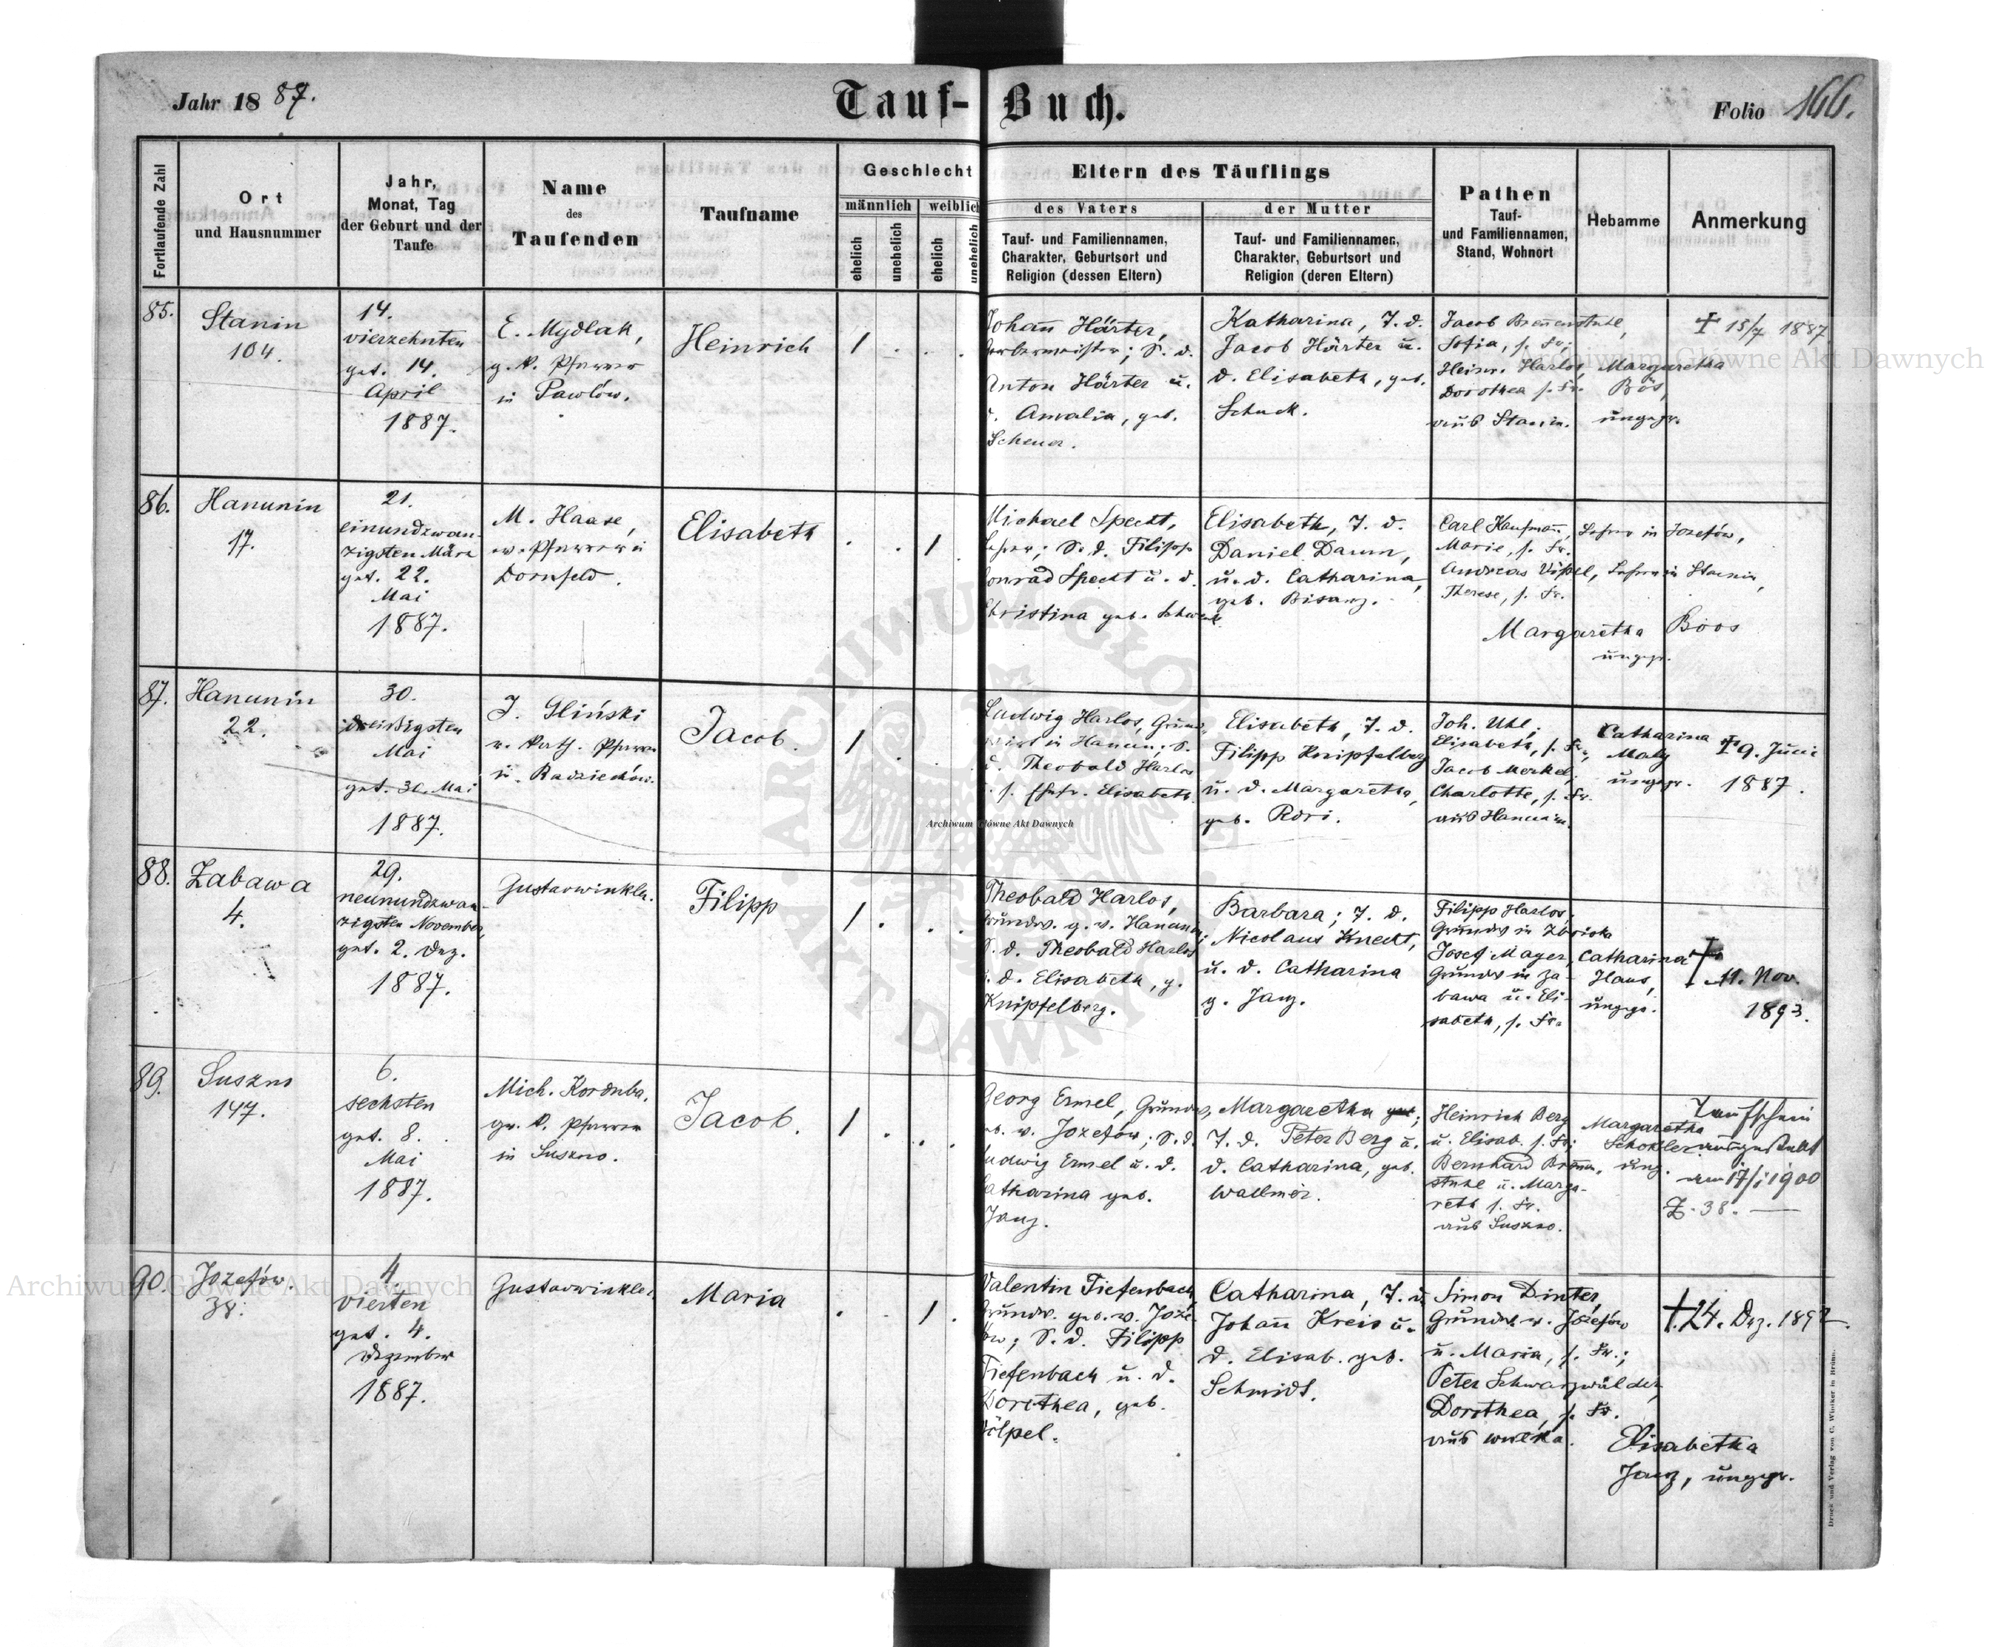 Jahr 1887.
Tauf-Buch.
Folio 166.
Fortlaufende Zahl
Ort
und Hausnummer
Jahr,
Monat, Tag
der Geburt und der
Taufe
Name
des
Taufenden
Taufname
Geschlecht
männlich
weiblich
ehelich
unehelich
ehelich
unehelich
Eltern des Täuflings
des Vaters
Tauf- und Familiennamen,
Charakter, Geburtsort und
Religion (dessen Eltern)
der Mutter
Tauf- und Familiennamen,
Charakter, Geburtsort und
Religion (deren Eltern)
Pathen
Tauf-
und Familiennamen,
Stand, Wohnort
Hebamme
Anmerkung
85.
Stanin
104.
14.
vierzehnten
get. 14.
April
1887.
E. Mydlak,
g. k. Pfarrer
in Pawłów.
Heinrich
1 . . .
Johann Härter,
Gerbermeister; S. d.
Anton Härter u.
d. Amalia, geb.
Scheuer.
Katharina, T. d.
Jacob Härter u.
d. Elisabeth, geb.
Schuck.
Jacob Brennenstuhl,
Sofia, s. Fr.;
Heinr. Harlos,
Dorothea s. Fr.
aus Stanin.
Margaretha
Bös,
ungepr.
† 15/7 1887
86.
Hanunin
17.
21.
einundzwan-
zigsten März
get. 22.
Mai
1887.
M. Haase,
ev. Pfarrer in
Dornfeld.
Elisabeth
. . 1 .
Michael Specht,
Lehrer; S. d. Filipp
Conrad Specht u. d.
Christina geb. Schwenk
Elisabeth, T. d.
Daniel Daum,
u. d. Catharina,
geb. Bisanz.
Carl Kaufmann, Lehrer in Józefów,
Marie, s. Fr.
Andreas Vößel, Lehrer in Stanin,
Therese, s. Fr.
Margaretha Böos
ungepr.
87.
Hanunin
22.
30.
dreißigsten
Mai
get. 30. Mai
1887.
J. Gliński
r. kath. Pfarrer
in Radziechów.
Jacob.
1 . . .
Ludwig Harlos, Grund-
wirt in Hanun; S.
d. Theobald Harlos
u. s. Ehefr. Elisabeth.
Elisabeth, T. d.
Filipp Knipfelberg
u. d. Margaretha,
geb. Röri.
Joh. Uhl,
Elisabeth, s. Fr.,
Jacob Merkel,
Charlotte, s. Fr.
aus Hanunin.
Catharina
Maly
ungepr.
† 9. Juni
1887.
88.
Zabawa
4.
29.
neunundzwan-
zigsten November,
get. 2. Dez.
1887.
Gustav Winkler.
Filipp
1 . . .
Theobald Harlos,
Grundw. g. v. Hanunin;
S. d. Theobald Harlos
u. d. Elisabeth, g.
Knipfelberg.
Barbara; T. d.
Nicolaus Knecht,
u. d. Catharina
g. Janz.
Filipp Harlos,
Grundw in Zboiska
Josef Mayer,
Grundw in Za-
bawa u. Eli-
sabeth, s. Fr.
Catharina
Haus,
ungepr.
†
11. Nov.
1893.
89.
Suszno
147.
6.
sechsten
get. 8.
Mai
1887.
Mich. Korduba,
gr. k. Pfarrer
in Suszno.
Jacob.
1 . . .
Georg Ermel, Grundw,
geb. v. Józefów; S. d.
Ludwig Ermel u. d.
Catharina geb.
Janz.
Margaretha
T. d. Peter Berg u.
d. Catharina, geb.
Wallmer.
Heinrich Berg
u. Elisab. s. Fr;
Bernhard Brenn-
stuhl u. Marga-
reth s. Fr.
aus Suszno.
Margaretha
ung.
Taufschein
ausgestellt
am 17/1 1900
Z. 38. —
90.
Józefów.
38.
4.
vierten
get. 4.
Dezember
1887.
Gustav Winkler.
Maria
. . 1 .
Valentin Tiefenbach,
Grundw. geb. v. Józe-
fów; S. d. Filipp
Tiefenbach u. d.
Dorothea, geb.
Catharina, T. d.
Johann Kreis u.
d. Elisab. geb.
Schmidt.
Simon Dinter,
Grundw. v. Józefów
u. Maria, s. Fr.;
Peter Schwarzwälder,
Dorothea, s. Fr.
aus Wulka.
Elisabetha
Janz, ungepr.
† 24. Dez. 1892.
Druck und Verlag von C. Winiker in Brünn.
Archiwum Główne Akt Dawnych
Archiwum Główne Akt Dawnych
Archiwum Główne Akt Dawnych
ARCHIWUM GŁÓWNE AKT DAWNYCH